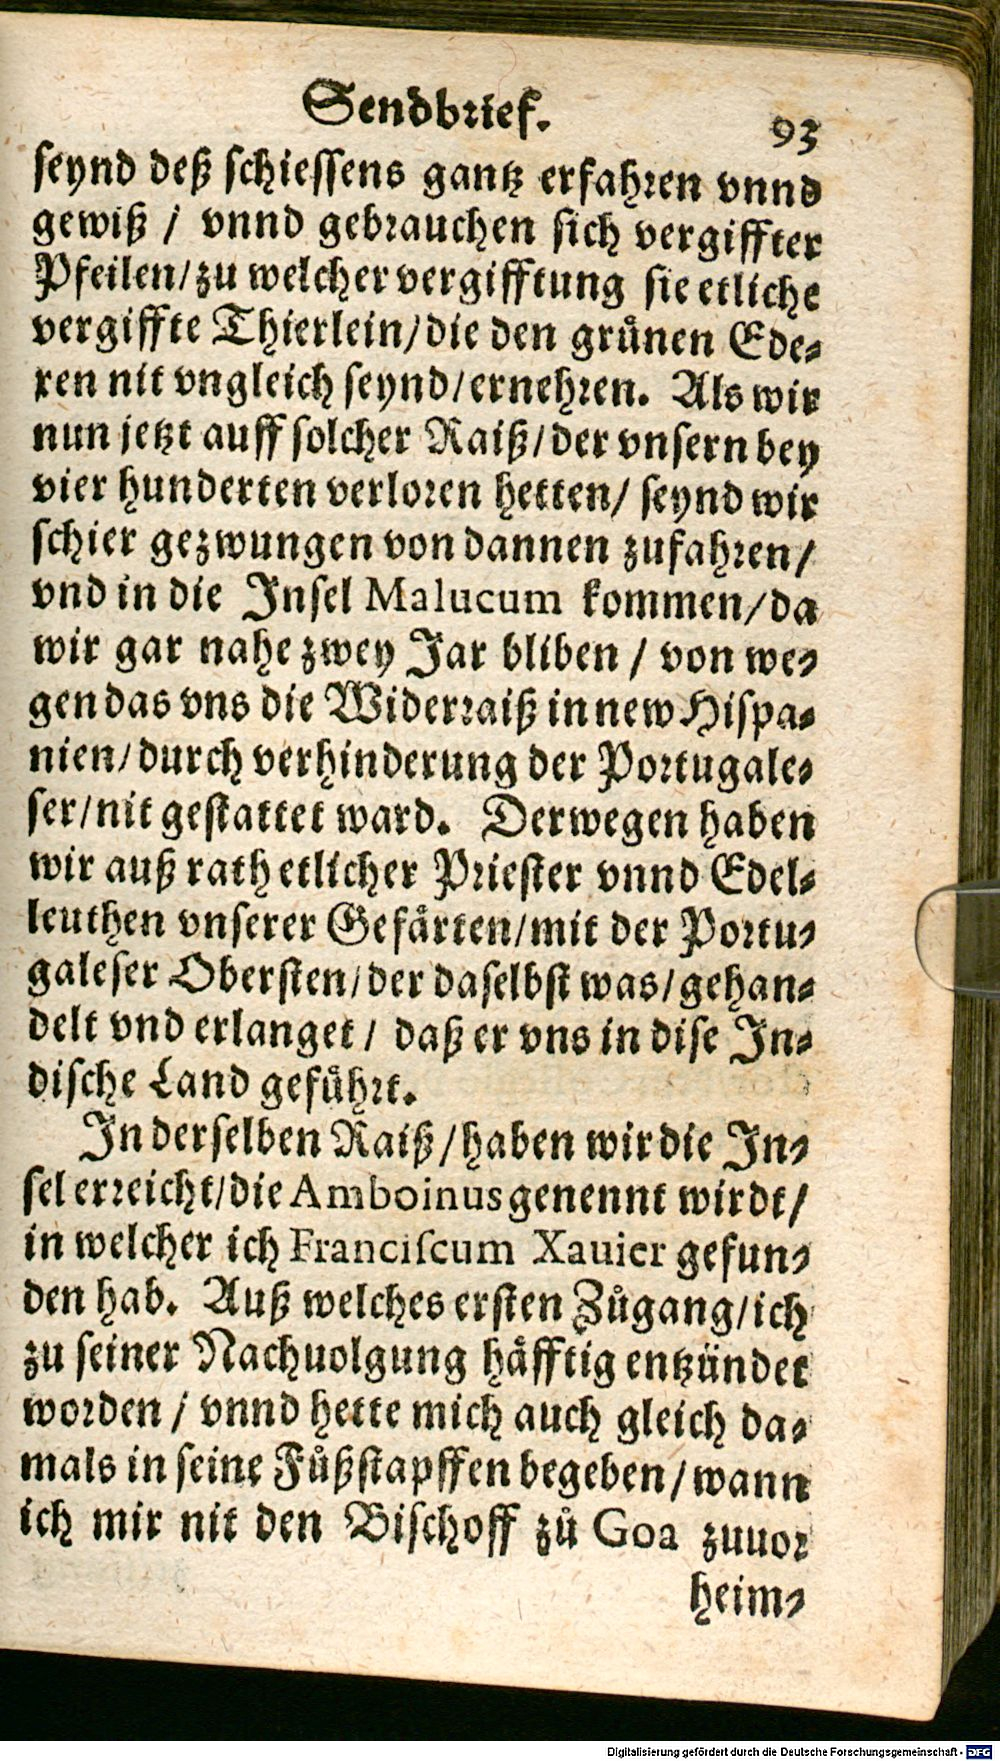 Sendbrief.
93
seynd deß schiessens gantz erfahren vnnd
gewiß / vnnd gebrauchen sich vergiffter
Pfeilen/zu welcher vergifftung sie etliche
vergiffte Thierlein/die den grůnen Ede-
ren nit vngleich seynd/ernehren. Als wir
nun jetzt auff solcher Raiß/der vnsern bey
vier hunderten verloren hetten/ seynd wir
schier gezwungen von dannen zufahren/
vnd in die Insel Malucum kommen/da
wir gar nahe zwey Jar bliben / von we-
gen das vns die Widerraiß in new Hispa-
nien/durch verhinderung der Portugale-
ser/nit gestattet ward. Derwegen haben
wir auß rath etlicher Priester vnnd Edel-
leuthen vnserer Gefårten/mit der Portu-
galeser Obersten/der daselbst was/gehan-
delt vnd erlanget / daß er vns in dise In-
dische Land gefůhrt.
In derselben Raiß/haben wir die In-
sel erreicht/die Amboinus genennt wirdt/
in welcher ich Franciscum Xauier gefun-
den hab. Auß welches ersten Zůgang/ich
zu seiner Nachuolgung håfftig entzündet
worden / vnnd hette mich auch gleich da-
mals in seine Fůßstapffen begeben/wann
ich mir nit den Bischoff zů Goa zuuor
heim-
Digitalisierung gefördert durch die Deutsche Forschungsgemeinschaft - DFG